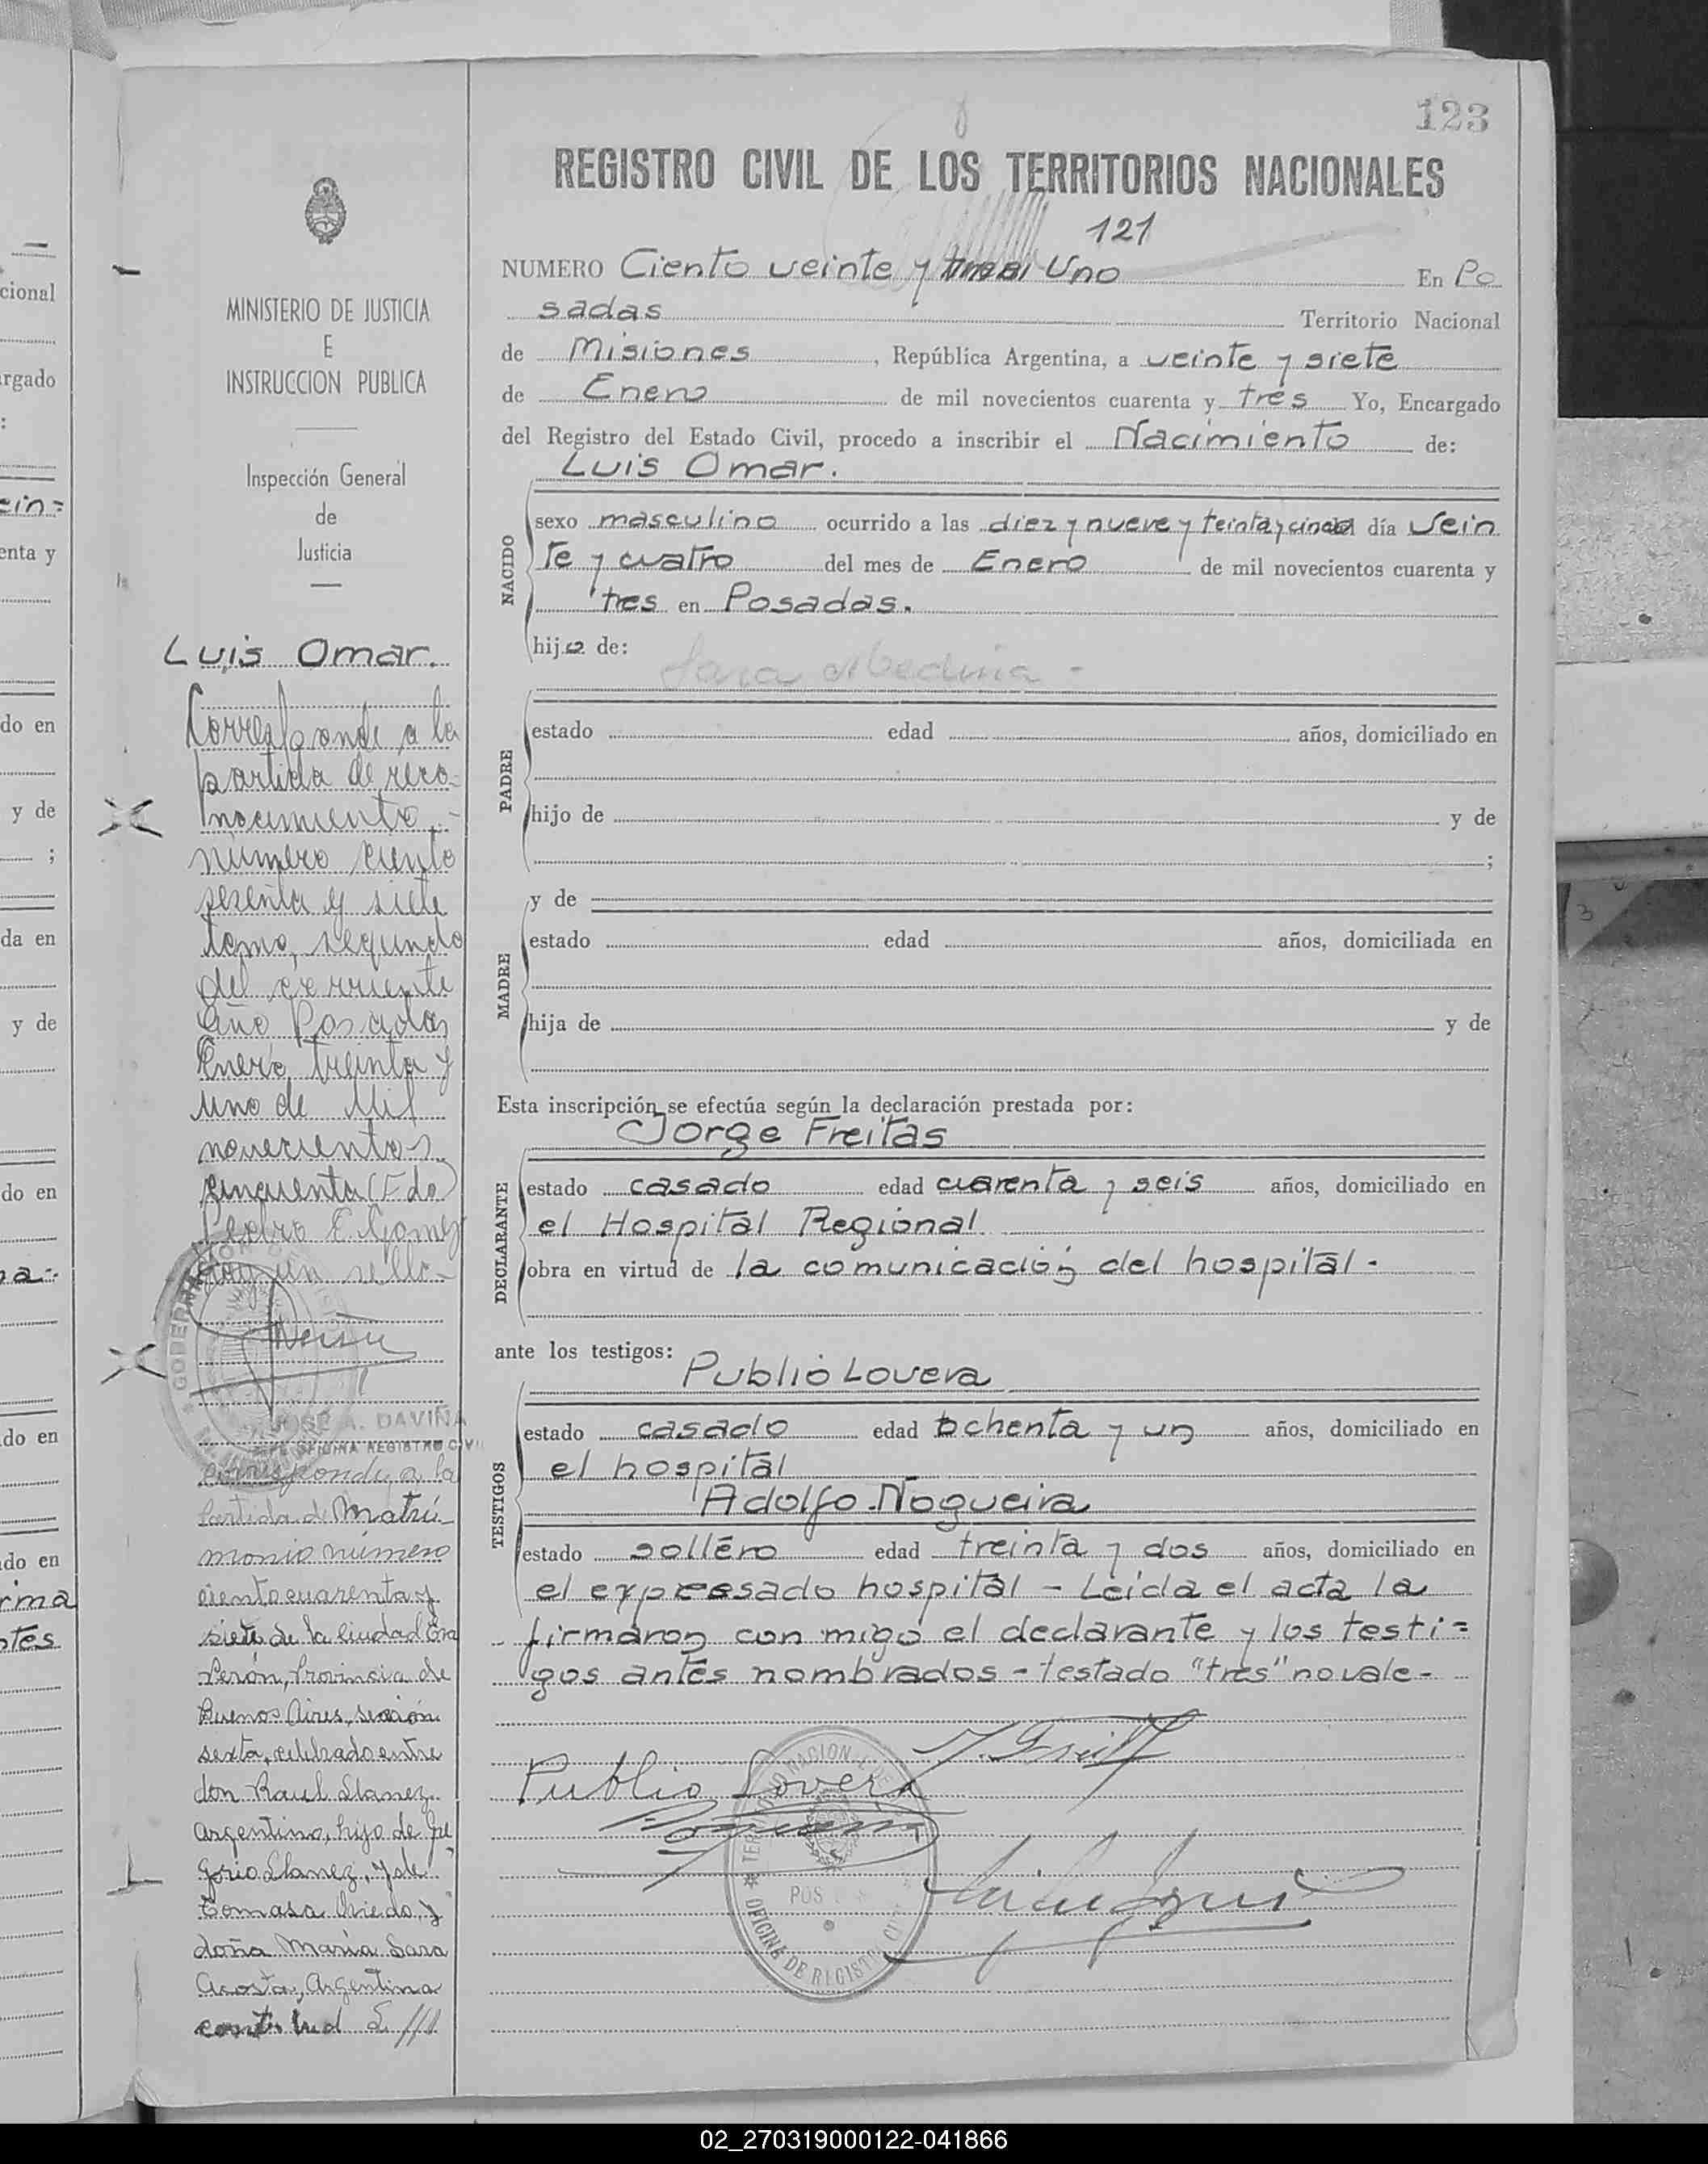 123
REGISTRO CIVIL DE LOS TERRITORIOS NACIONALES
121
NUMERO Ciento veinte y tres Uno En Po
sadas Territorio Nacional
de Misiones, República Argentina, a veinte y siete
de Enero de mil novecientos cuarenta y tres Yo, Encargado
del Registro del Estado Civil, procedo a inscribir el Nacimiento de:
Luis Omar.
NACIDO
sexo masculino ocurrido a las diez y nueve y treinta y cinco día Vein
te y cuatro del mes de Enero de mil novecientos cuarenta y
tres en Posadas.
hijo de:
Sara Medina -
PADRE
estado edad años, domiciliado en
hijo de y de
;
y de
MADRE
estado edad años, domiciliada en
hija de y de
Esta inscripción se efectúa según la declaración prestada por:
Jorge Freitas
DECLARANTE
estado casado edad cuarenta y seis años, domiciliado en
el Hospital Regional
obra en virtud de la comunicación del hospital -
ante los testigos:
Publio Lovera
TESTIGOS
estado casado edad ochenta y un años, domiciliado en
el hospital
Adolfo Nogueira
estado soltero edad treinta y dos años, domiciliado en
el expresado hospital - Leida el acta la
firmaron con migo el declarante y los testi=
gos antes nombrados - testado "tres" no vale -
Publio Lovera
TERRITORIO NACIONAL DE
POS
OFICINA DE REGISTRO CIVIL
MINISTERIO DE JUSTICIA
E
INSTRUCCION PUBLICA
Inspección General
de
Justicia
Luis Omar.
Corresponde a la
partida de reco-
nocimiento -
número ciento
sesenta y siete
tomo, segundo
del corriente
año Posadas
Enero, treinta y
uno de Mil
novecientos
cincuenta (Fdo)
Pedro E. Gomez
hay un sello -
GOBERNACION DE MISIONES
JOSE A. DAVIÑA
JEFE OFICINA REGISTRO CIVIL
Corresponde a la
Partida de Matri-
monio número
ciento cuarenta y
siete de la Ciudad Eva
Perón, Provincia de
Buenos Aires, sección
sexta, celebrado entre
don Raul Llanez
argentino, hijo de Gre
gorio Llanez, y de
Tomasa Oviedo, y
doña Maria Sara
Acosta, Argentina
cional
rgado
:
ein=
enta y
do en
y de
;
da en
y de
do en
na -
do en
do en
rma
ntes
3
02_270319000122-041866